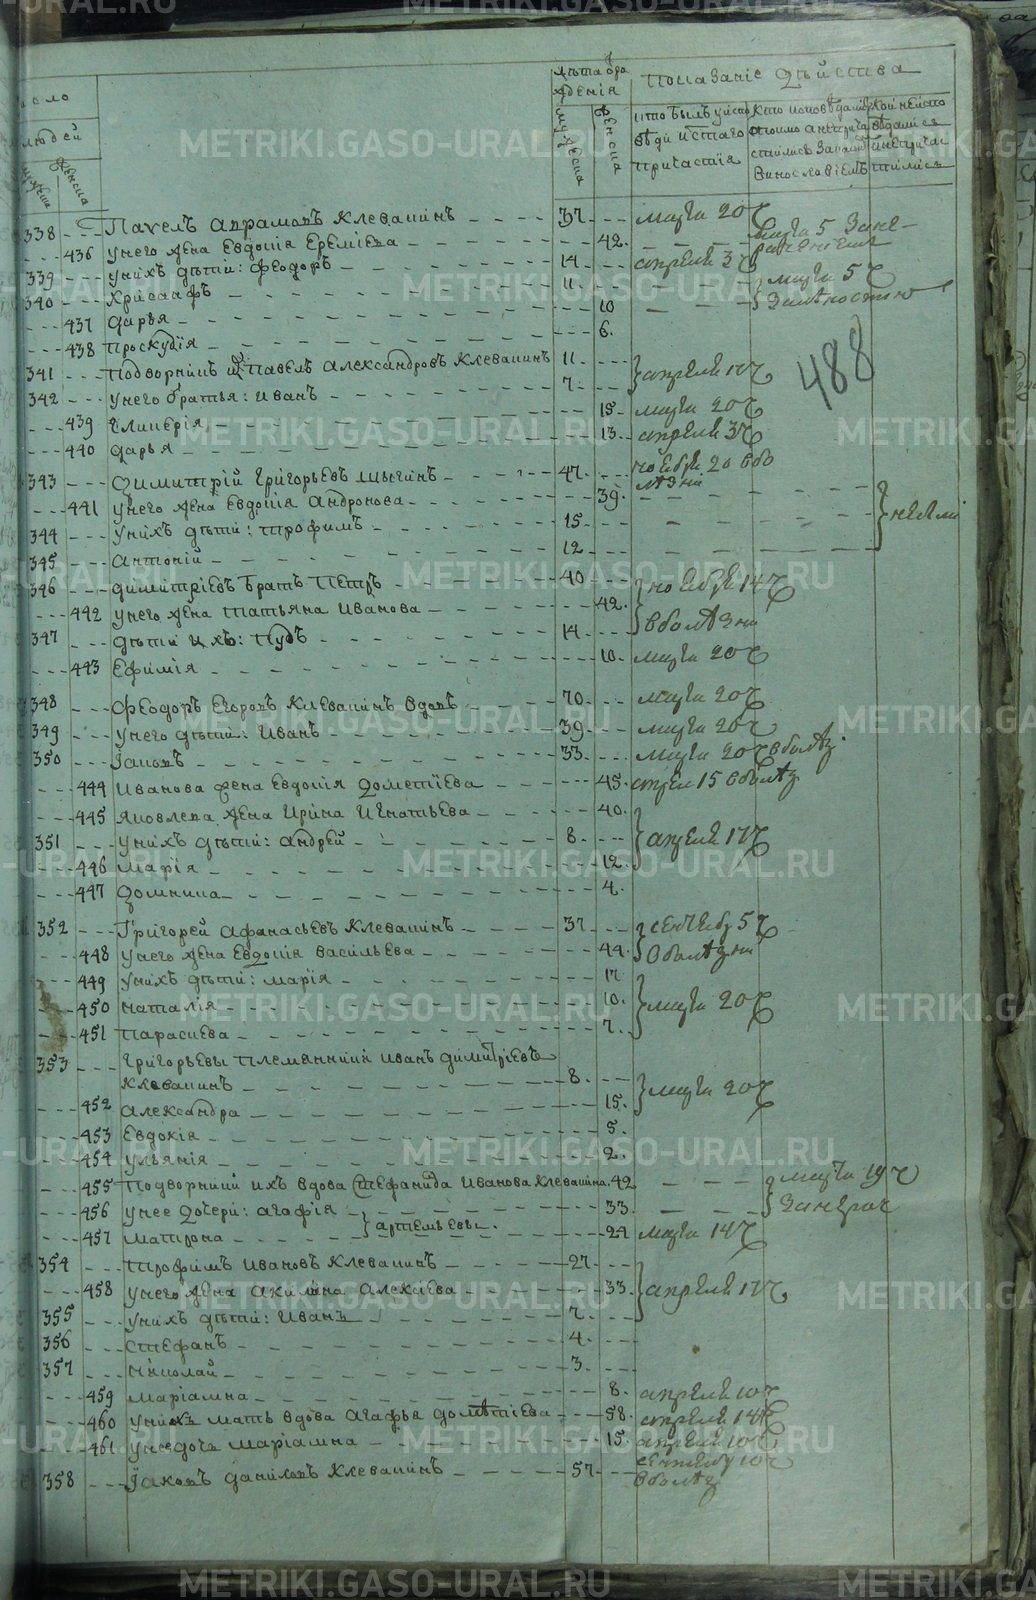 Лѣта рождения
Показаніе Дѣйства
людей
мужеска
женска
338 Павелъ Авраамовъ Клевакинъ 37 марта 20 Ч
436 у него жена Евдокія Еремѣева 42. марта 5
339 у нихъ дѣти: Феодоръ 14 апреля 3 Ч
340 Хрисанфъ 11 марта 5 Ч
437 Дарья 10
438 Проскудія 6.
341 Подворникъ ихъ Павелъ Александровъ Клевакинъ 11 апреля 17 Ч
488
342 у него братья: Иванъ 7
439 Гликерія 15 марта 20 Ч
440 Дарья 13 апреля 3 Ч
343 Димитрій Григорьевъ 47 ноября 20 в болѣзни
441 у него жена Евдокія Андронова 39
344 у нихъ дѣти: Трофимъ 15
345 Антоній 12
346 Димитріевъ братъ Петръ 40 ноября 14 Ч
442 у него жена Татьяна Иванова 42 в болѣзни
347 дѣти ихъ: Пудъ 14
443 Ефимія 10 марта 20 Ч
348 Феодоръ Егоровъ Клевакинъ вдовъ 70 марта 20 Ч
349 у него дѣти: Иванъ 39 марта 20 Ч
350 Іаковъ 33 марта 20 Ч в болѣз
444 Иванова жена Евдокія Дометіева 45 апрел 15 в болѣз
445 Яковлева жена Ирина Игнатьева 40
351 у нихъ дѣти: Андрей 8 апреля 17 Ч
446 Марія 12
447 Домника 4
352 Григорей Афанасьевъ Клевакинъ 37 сентебр 5 Ч
448 у него жена Евдокія Васильева 44 в болѣзни
449 у нихъ дѣти: Марія 17
450 Наталія 10 марта 20 Ч
451 Парасцева 7
353 Григорьевы племянники Иванъ Димитріевъ
Клевакинъ 8 марта 20 Ч
452 Александра 15
453 Евдокія 5
454 Ульянія 2
455 Подворники ихъ вдова Стефанида Иванова Клевакина 42 марта 19 Ч
456 у нее дочери: Агафія 33
457 Матрона Артемьевы 24 марта 14 Ч
354 Трофимъ Ивановъ Клевакинъ 27
458 у него жена Акилина Алексіева 33 апреля 17 Ч
355 у нихъ дѣти: Иванъ 7
356 Стефанъ 4
357 Николай 3
459 Маріамна 8 апреля 10 Ч
460 у нихъ мать вдова Агафья Дометіева 58 апреля 14 Ч
461 у нее дочь Маріамна 15 апреля 10 Ч
358 Іаковъ Даниловъ Клевакинъ 57 сентебр 10 Ч
в болѣз
METRIKI.GASO-URAL.RU